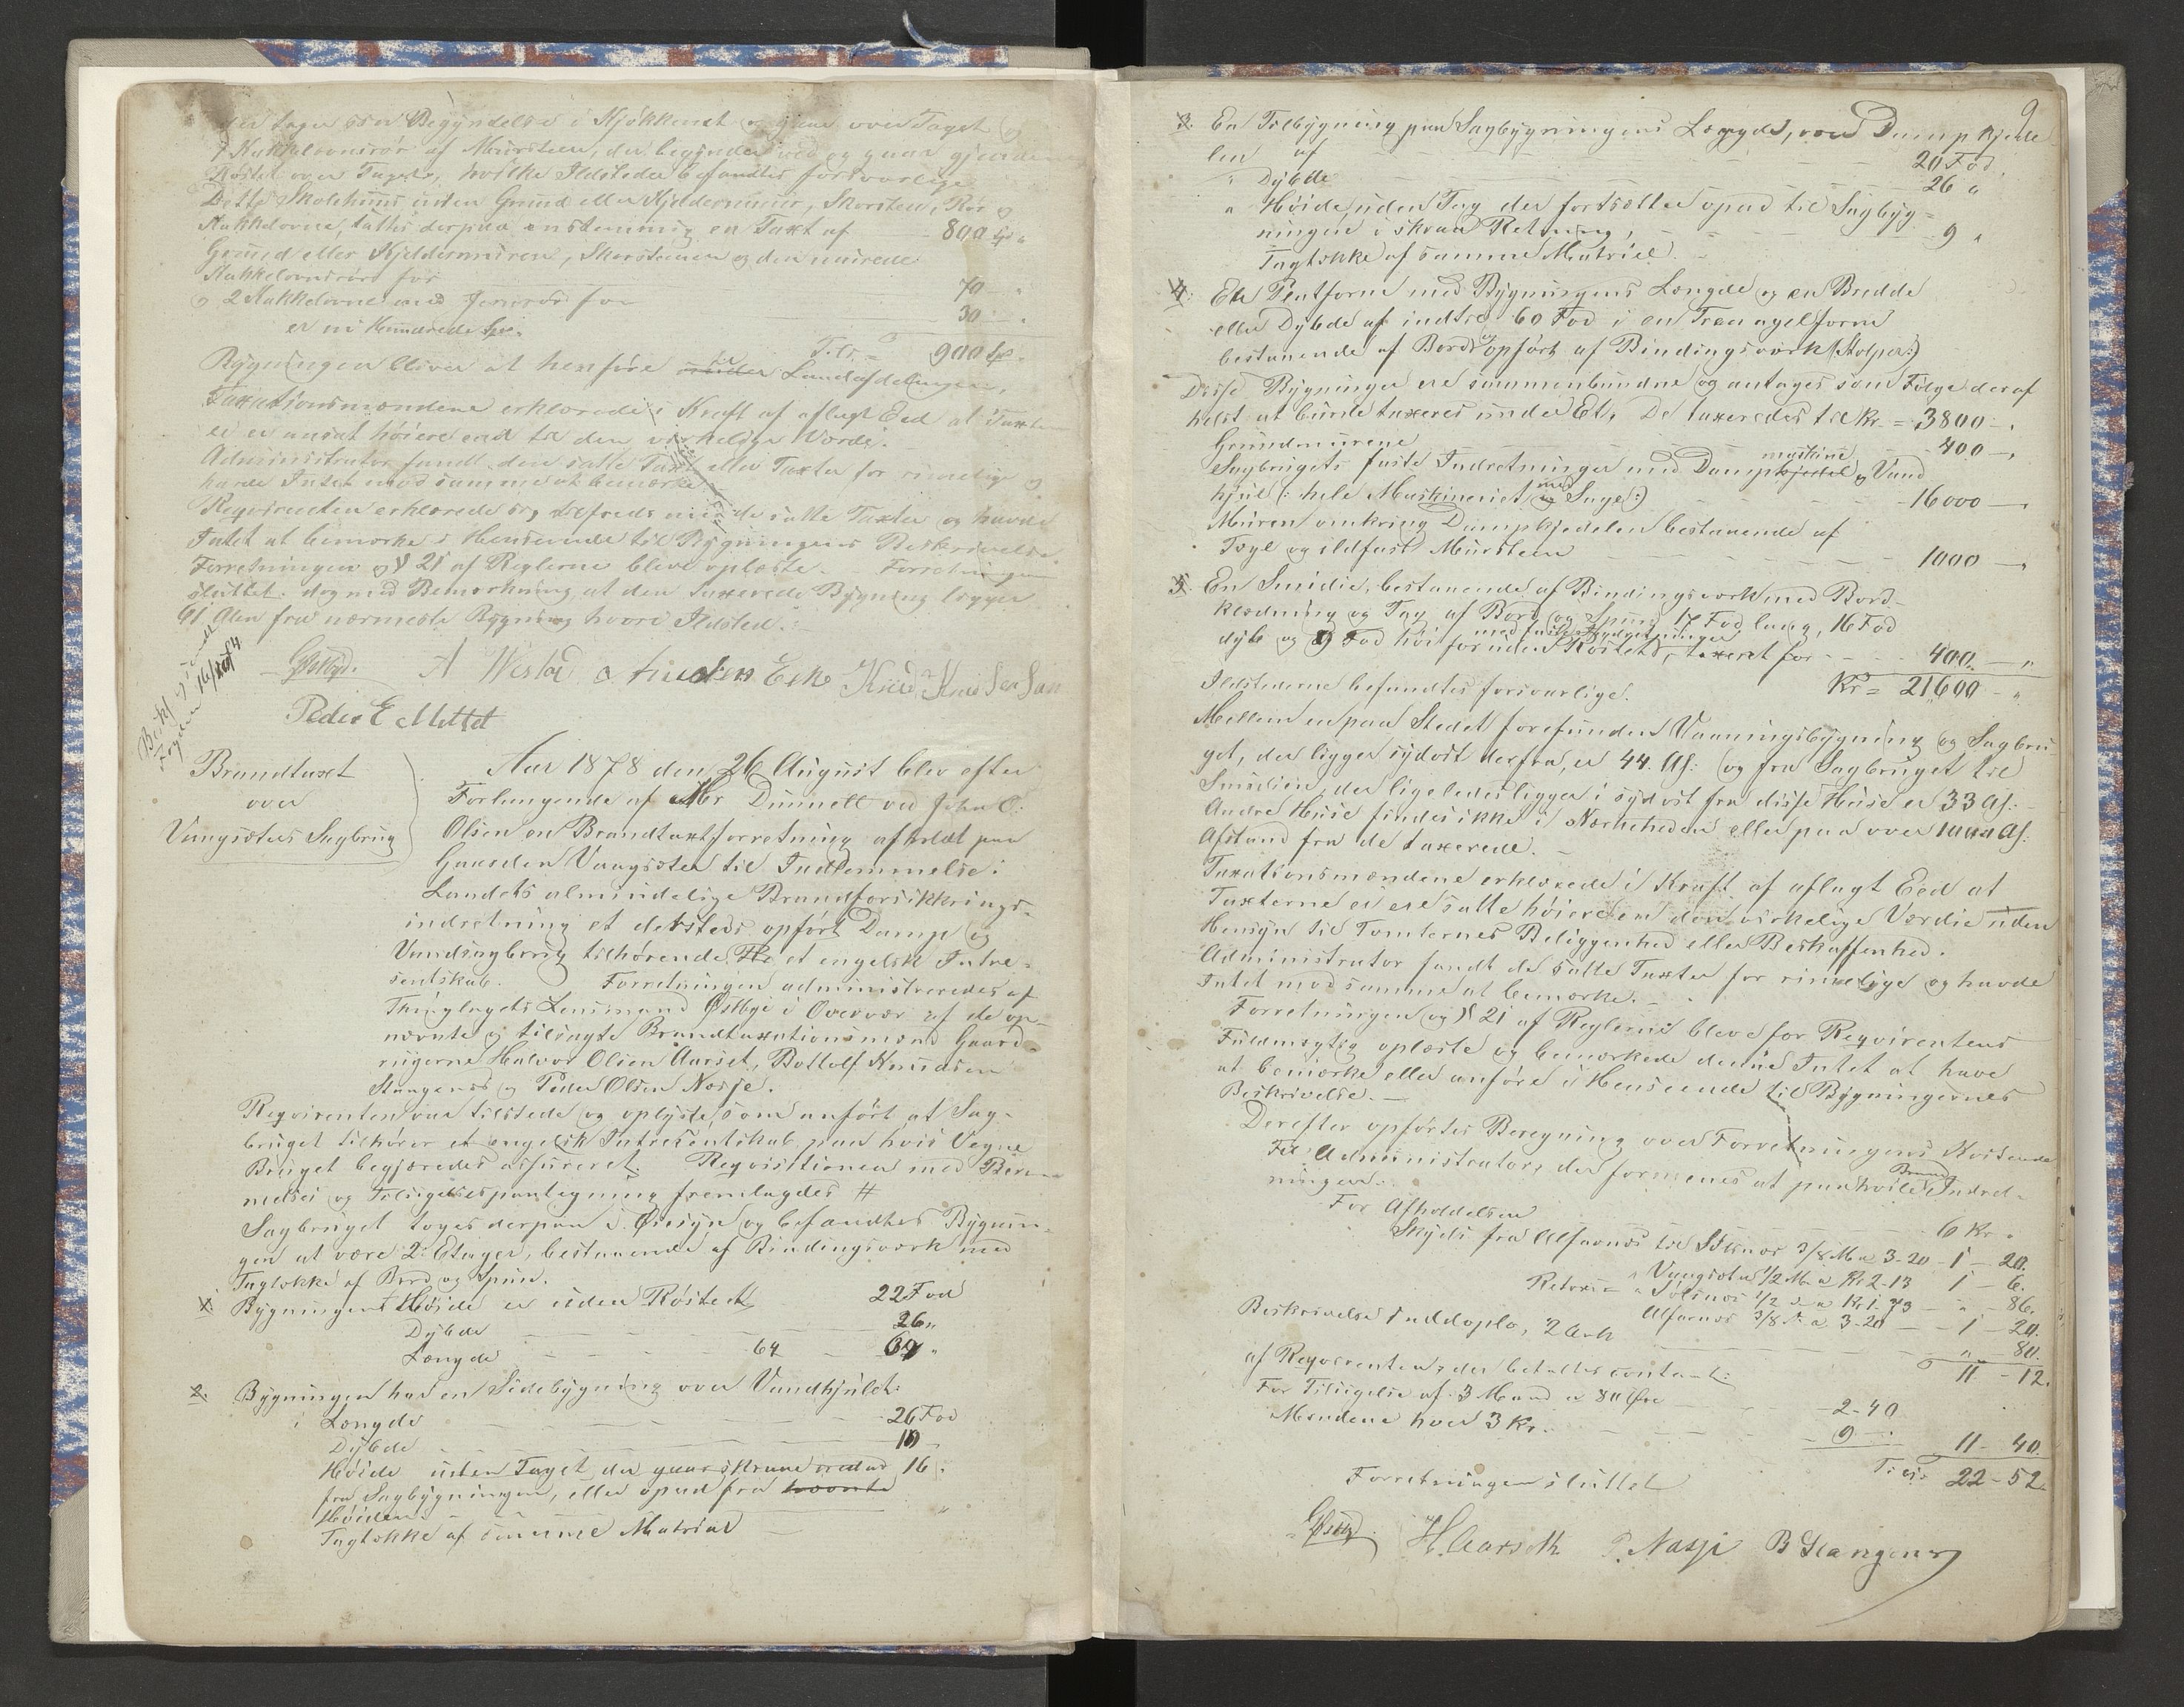 der tager sin Begyndelse i Kjøkkenet og gaar over Taget og
1 Kakkelovnsrør af Mursteen, der begynder ved og gaar gjennem
Røstet over Taget, hvilke Ildsteder befandtes forsvarlige
Dette Skolehuus uden Grund eller Kjeldermuur, Skorsten, Rør og
Kakkelovne, sattes derpaa enstemmig en Taxt af 800 Spd "
Grund eller Kjeldermuren, Skorstenen og den murede
Kakkelovnsrør for 70 — "
og 2 Kakkelovne med Jernrør for 30 — "
er ni Hundrede Spd. Tils. = 900 Spd.
Bygningen bliver at henføre under til Landafdelingen.
Taxationsmændene erklærede i Kraft af aflagt Eed at Taxten
ei er ansat høiere end til den virkelige Værdi.
Administrator fandt den satte Taxt eller Taxter for rimelige og
havde Intet mod samme at bemærke.
Reqvirenten erklærede sig tilfreds med de satte Taxter og havde
Intet at bemærke i Henseende til Bygningens Beskrivelse.
Forretningen og § 21 af Reglerne bleve oplæste. Forretningen
sluttet. dog med Bemærkning at den taxerede Bygning ligger
61 Alen fra nærmeste Bygning hvori Ildsted.
GØstbye. A Westad Knud Knudsen
Peder E Mittet
Brandtaxt
over
Vangsæters Sagbrug
Aar 1878 den 26 August blev efter
Forlangende af Mr Dunnell ved John O.
Olsen en Brandtaxtforretning afholdt paa
Gaarden Vangsæter til Indlemmelse i
Landets almindelige Brandforsikkrings-
indretning et dersteds opført Damp og
Vandsagbrug tilhørende et engelsk Intre-
sentskab. Forretningen administreredes af
Thinglagets Lensmand Østbye i Overvær af de op-
nævnte og tilsagte Brandtaxationsmænd Gaard-
rugerne Halvor Olsen Aarset, Bottolf Knudsen
Stangenes og Peder Olsen Nasje.
Reqvirenten var tilstede og oplyste, som anført at Sag-
bruget tilhører et engelsk Intresentskab paa hvis Vegne
Bruget begjæredes assureret. Reqvisitionen med Beram-
melses og Tilsigelsespaategning fremlagdes #
Sagbruget toges derpaa i Øiesyn og befandtes Bygnin-
gen at være 2 Etager, bestaaende af Bindingsværk med
Tagtække af Bord og Spun.
1. Bygningens Høide er uden Røstet 22 Fod
Dybde 26 "
Længde 64 64 "
2. Bygningen har en Sidebygning over Vandhjulet:
i Længde 26 Fod
Dybde 10 "
Høide uden Taget der gaar skraae nedad 16 "
fra Sagbygningen, eller opad fra
Høiden "
Tagtække af samme Matriel
9
3. En Tilbygning paa Sagbygningens Længde, over Dampkjede-
len af 20 Fod.
" Dybde 26 "
" Høide, uden Tag der fortsætter opad til Sagbyg-
ningen i skraa Retning, 9 "
Tagtække af samme Matriel.
4. En Platform med Bygningens Længde og en Bredde
eller Dybde af indtil 60 Fod i en Treangelform
bestaaende af Bord og opført af Bindingsværk (Stolper:)
Disse Bygninger ere sammenbundne og antages som Følge deraf
helst at burde taxeres under Et. De taxeredes til Kr. = 3800 — "
Grundmurene 400 — "
Sagbrugets faste Indretninger med Dampkjedel maskine og Vand
hjul (: hele Maskineriet og med Sage :) 16000 — "
Muren omkring Dampkjedelen bestaaende af
Tegl og ildfast Mursteen 1000 — "
5. En Smidie, bestaaende af Bindingsværk med Bord-
klædning og Tag af Bord og Spun 17 Fod lang, 16 Fod
dyb og 9 Fod høi foruden Røstet, med faste Indretninger taxeret for 400 — "
Ildstederne befandtes forsvarlige. Kr = 21600 — "
Mellem en paa Stedet forefunden Vaaningsbygning og Sagbru-
get, der ligger sydost derfra, er 44. Al: og fra Sagbruget til
Smidien, der ligeledes ligger i sydost fra disse Huse er 33 Al:
Andre Huse findes ikke i Nærheden eller paa over 1000 Al.
Afstand fra de taxerede.
Taxationsmændene erklærede i Kraft af aflagt Eed at
Taxterne ei ere satte høiere end den virkelige Værdie uden
Hensyn til Tomternes Beliggenhed eller Beskaffenhed.
Administrator fandt de satte Taxter for rimelige og havde
Intet mod samme at bemærke.
Forretningen og § 21 af Reglerne bleve for Reqvirentens
Fuldmægtig oplæste og bemærkede denne Intet at have
at bemærke eller anføre i Henseende til Bygningernes
Beskrivelse.
Derefter opførtes Beregning over Forretningens Kostende
Til Administrator, der formenes at paahvile Brand Indret-
ningen.
For Afholdelsen 6 Kr. "
Skyds fra Alfarnæs til Sølsnæs 3/8 M a 3-20 - 1 - 20.
" Vangsæter 1/2 M a Kr 2-13 1 - 6.
Retour = " Sølsnæs 1/2 — a Kr 1.73 — " - 86.
Alfarnæs 3/8 M. a 3-20 — 1 - 20.
Beskrivelse 1 uddoplo, 2 Ark " 80.
af Reqvirenten, der betaltes contant: 11 - 12.
For Tilsigelse af 3 Mænd a 80 Øre 2-40
Mændene hver 3 Kr. 9 — "
11 - 40.
Forretningen sluttet Tils: 22 - 52.
GØstby. H. Aarseth P. Nasje B Stangenes